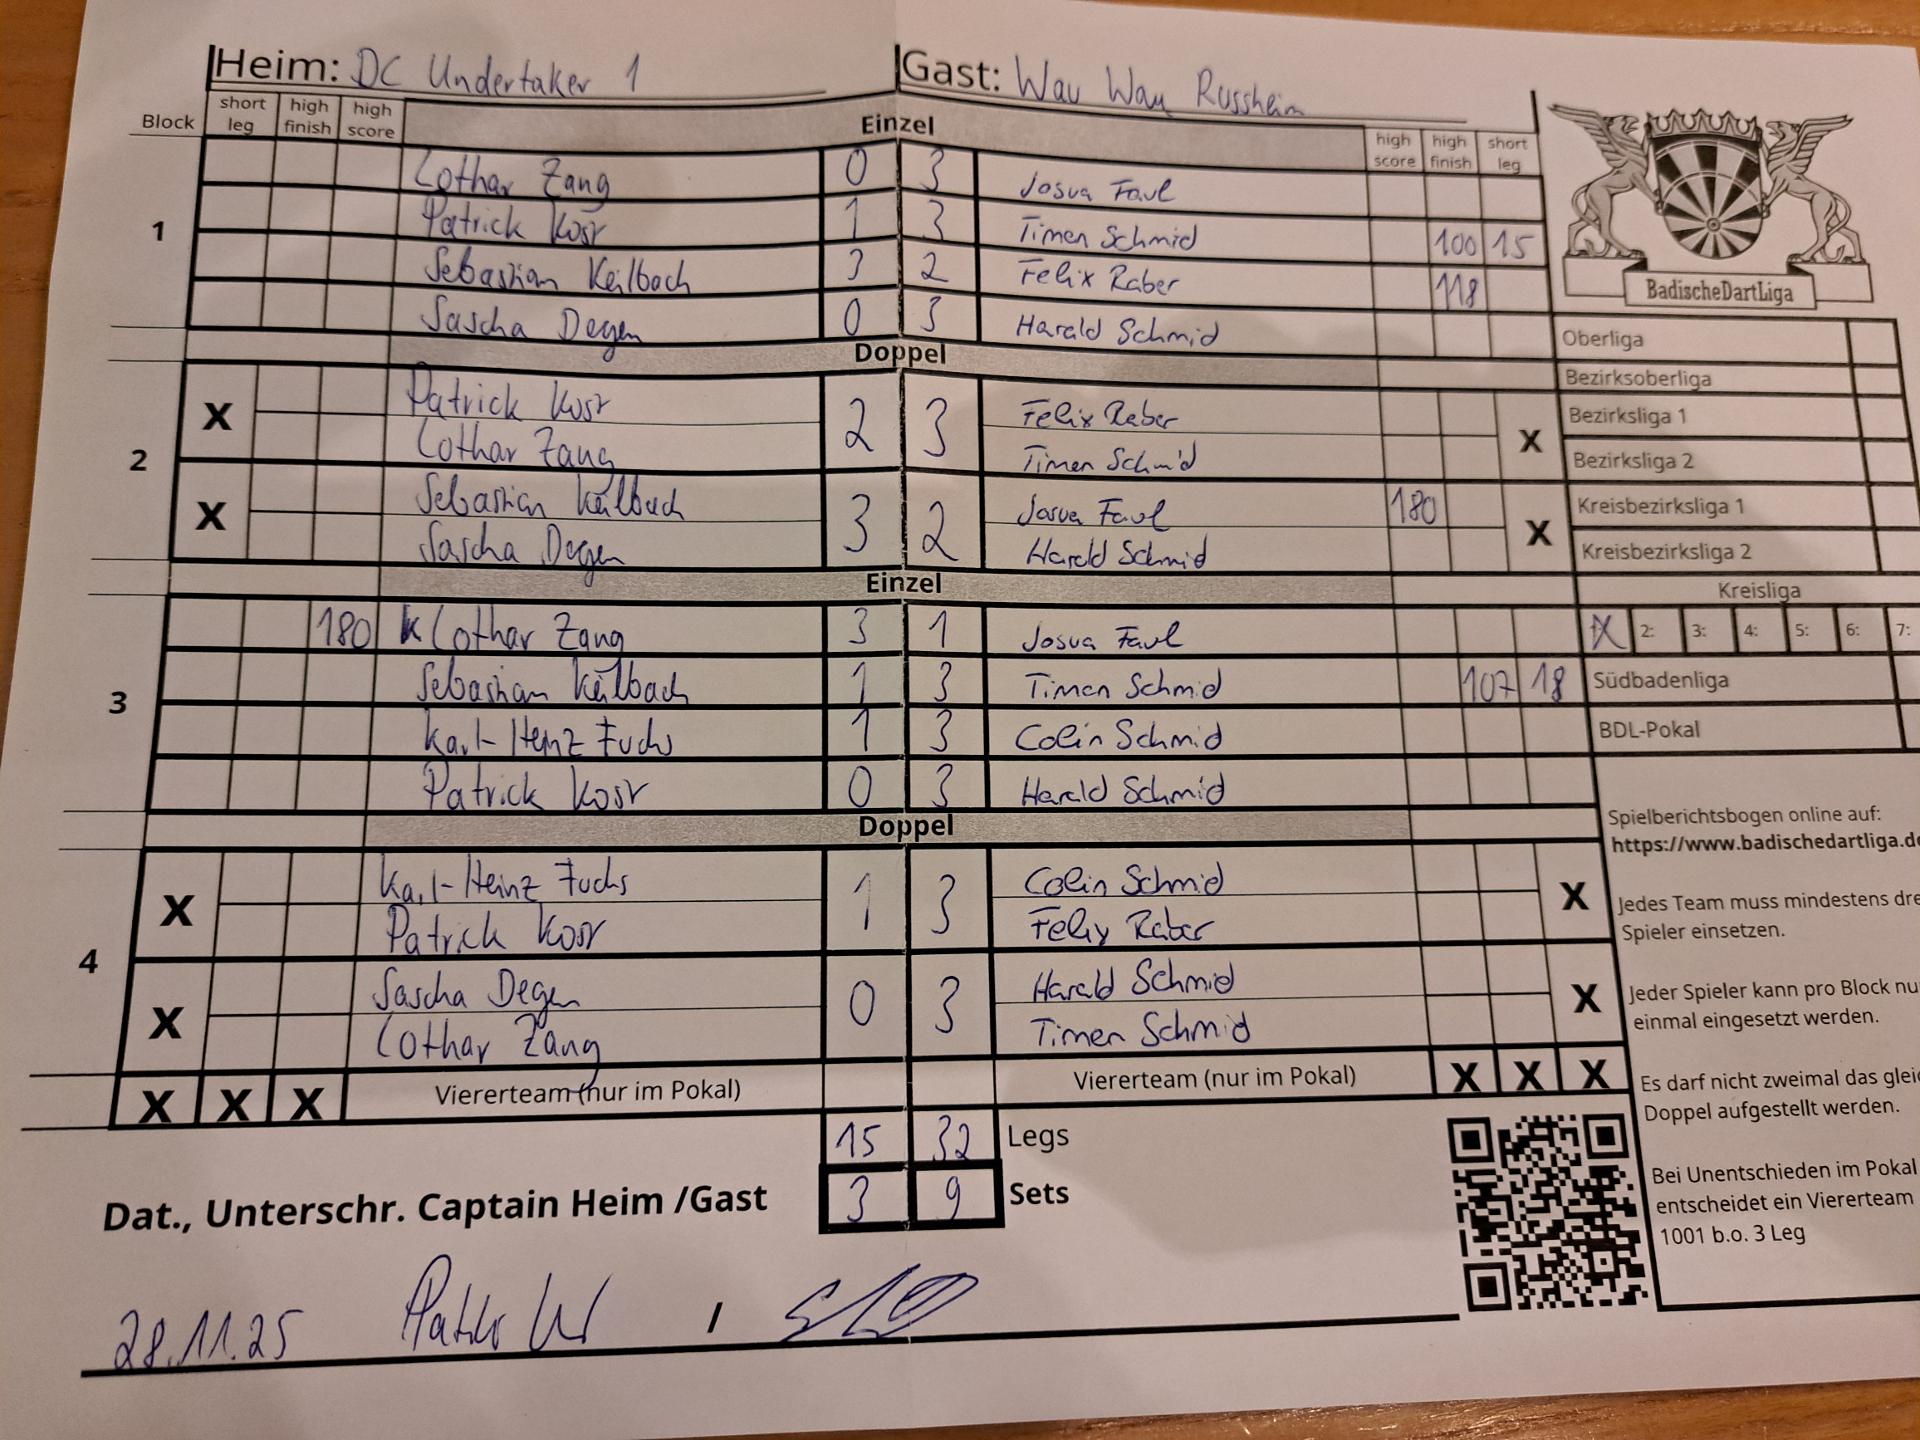 Heim: DC Undertaker 1 Gast: Wau Wau Russheim
Block short leg high finish high score Einzel high score high finish short leg
1
Lothar Zang 0 3 Josua Faul
Patrick Kosr 1 3 Timen Schmid 100 15
Sebastian Keilbach 3 2 Felix Raber 118
Sascha Degen 0 3 Harald Schmid
Doppel
2
X Patrick Kosr 2 3 Felix Raber X
Lothar Zang Timen Schmid
X Sebastian Keilbach 3 2 Josua Faul 180 X
Sascha Degen Harald Schmid
Einzel
3
180 Lothar Zang 3 1 Josua Faul
Sebastian Keilbach 1 3 Timen Schmid 107 18
Karl-Heinz Fuchs 1 3 Colin Schmid
Patrick Kosr 0 3 Harald Schmid
Doppel
4
X Karl-Heinz Fuchs 1 3 Colin Schmid X
Patrick Kosr Felix Raber
X Sascha Degen 0 3 Harald Schmid X
Lothar Zang Timen Schmid
X X X Viererteam (nur im Pokal) Viererteam (nur im Pokal) X X X
15 32 Legs
3 9 Sets
Dat., Unterschr. Captain Heim /Gast
28.11.25 /
BadischeDartLiga
Oberliga
Bezirksoberliga
Bezirksliga 1
Bezirksliga 2
Kreisbezirksliga 1
Kreisbezirksliga 2
Kreisliga
X 2: 3: 4: 5: 6: 7:
Südbadenliga
BDL-Pokal
Spielberichtsbogen online auf:
https://www.badischedartliga.de
Jedes Team muss mindestens dre
Spieler einsetzen.
Jeder Spieler kann pro Block nu
einmal eingesetzt werden.
Es darf nicht zweimal das gleic
Doppel aufgestellt werden.
Bei Unentschieden im Pokal
entscheidet ein Viererteam
1001 b.o. 3 Leg